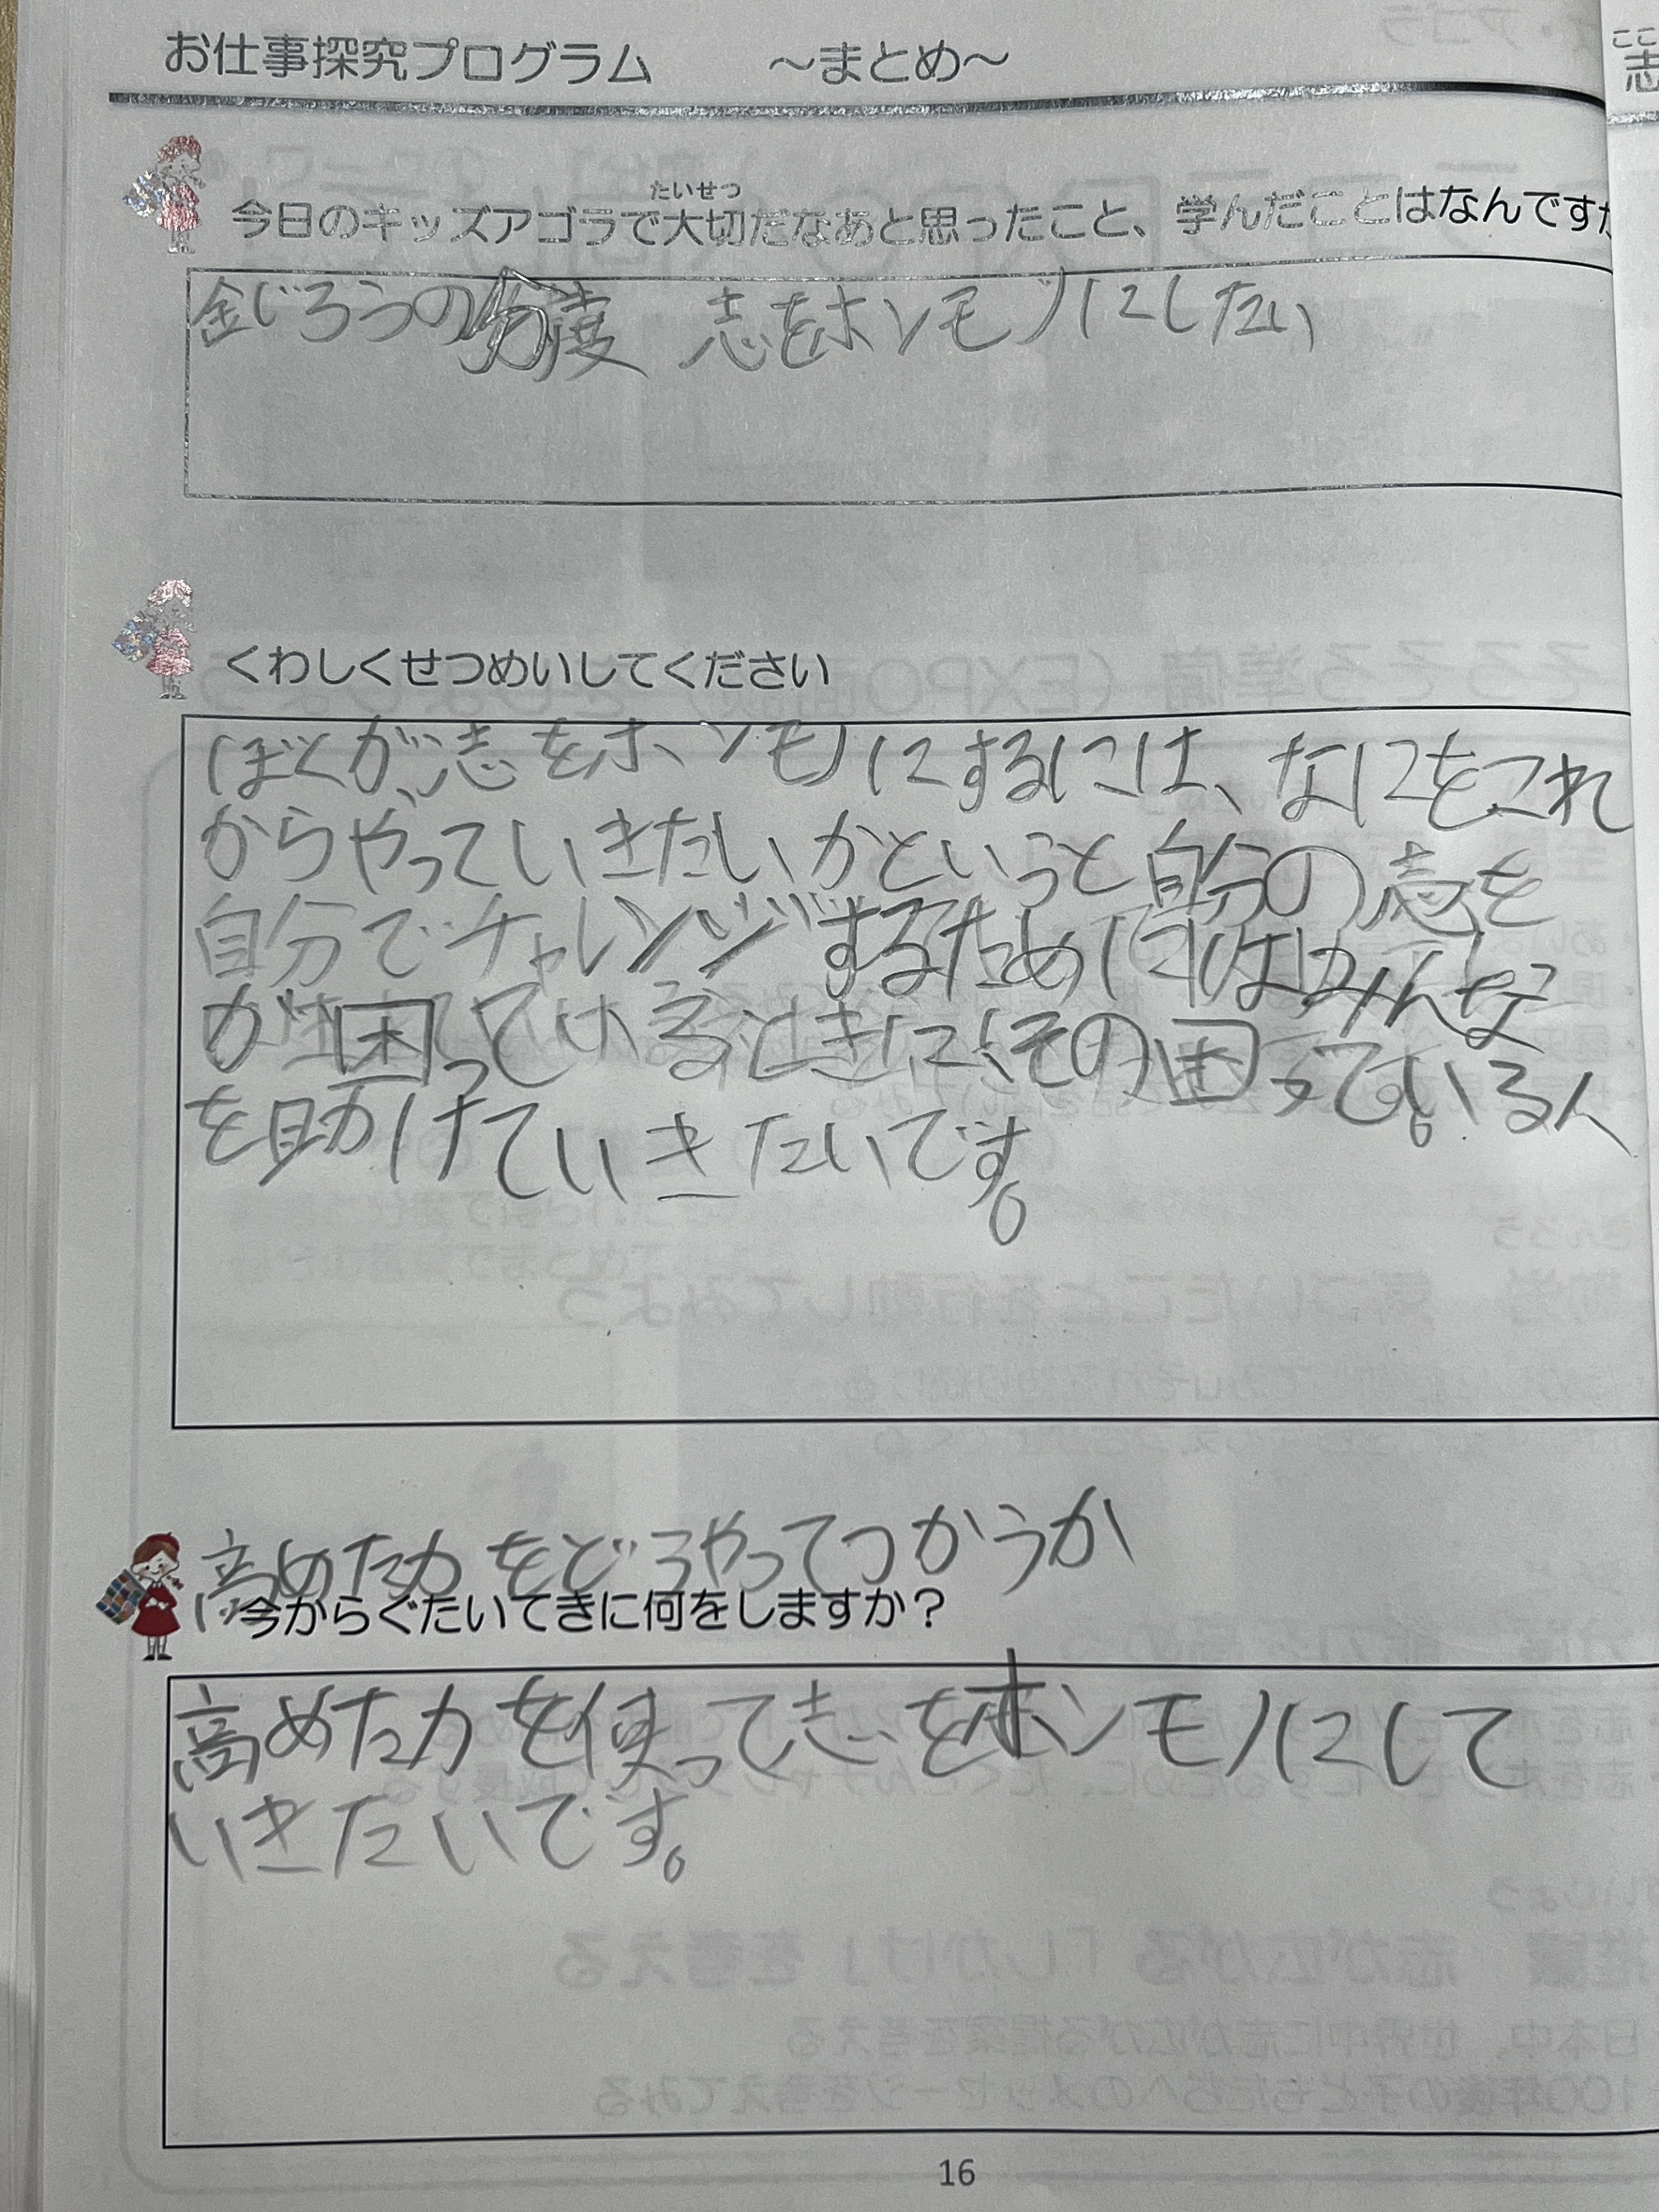 お仕事探究プログラム　～まとめ～
たいせつ
今日のキッズアゴラで大切だなあと思ったこと、学んだことはなんです
金じろうの分度　志をホンモノにしたい
くわしくせつめいしてください
ぼくが、志をホンモノにするには、なにをこれ
からやっていきたいかというと自分の志を
自分でチャレンジするためにはみんな
が困っているときに、その困っている人
を助けていきたいです。
高めた力をどうやってつかうか
今からぐたいてきに何をしますか？
高めた力を使って志をホンモノにして
いきたいです。
16
ここ
志